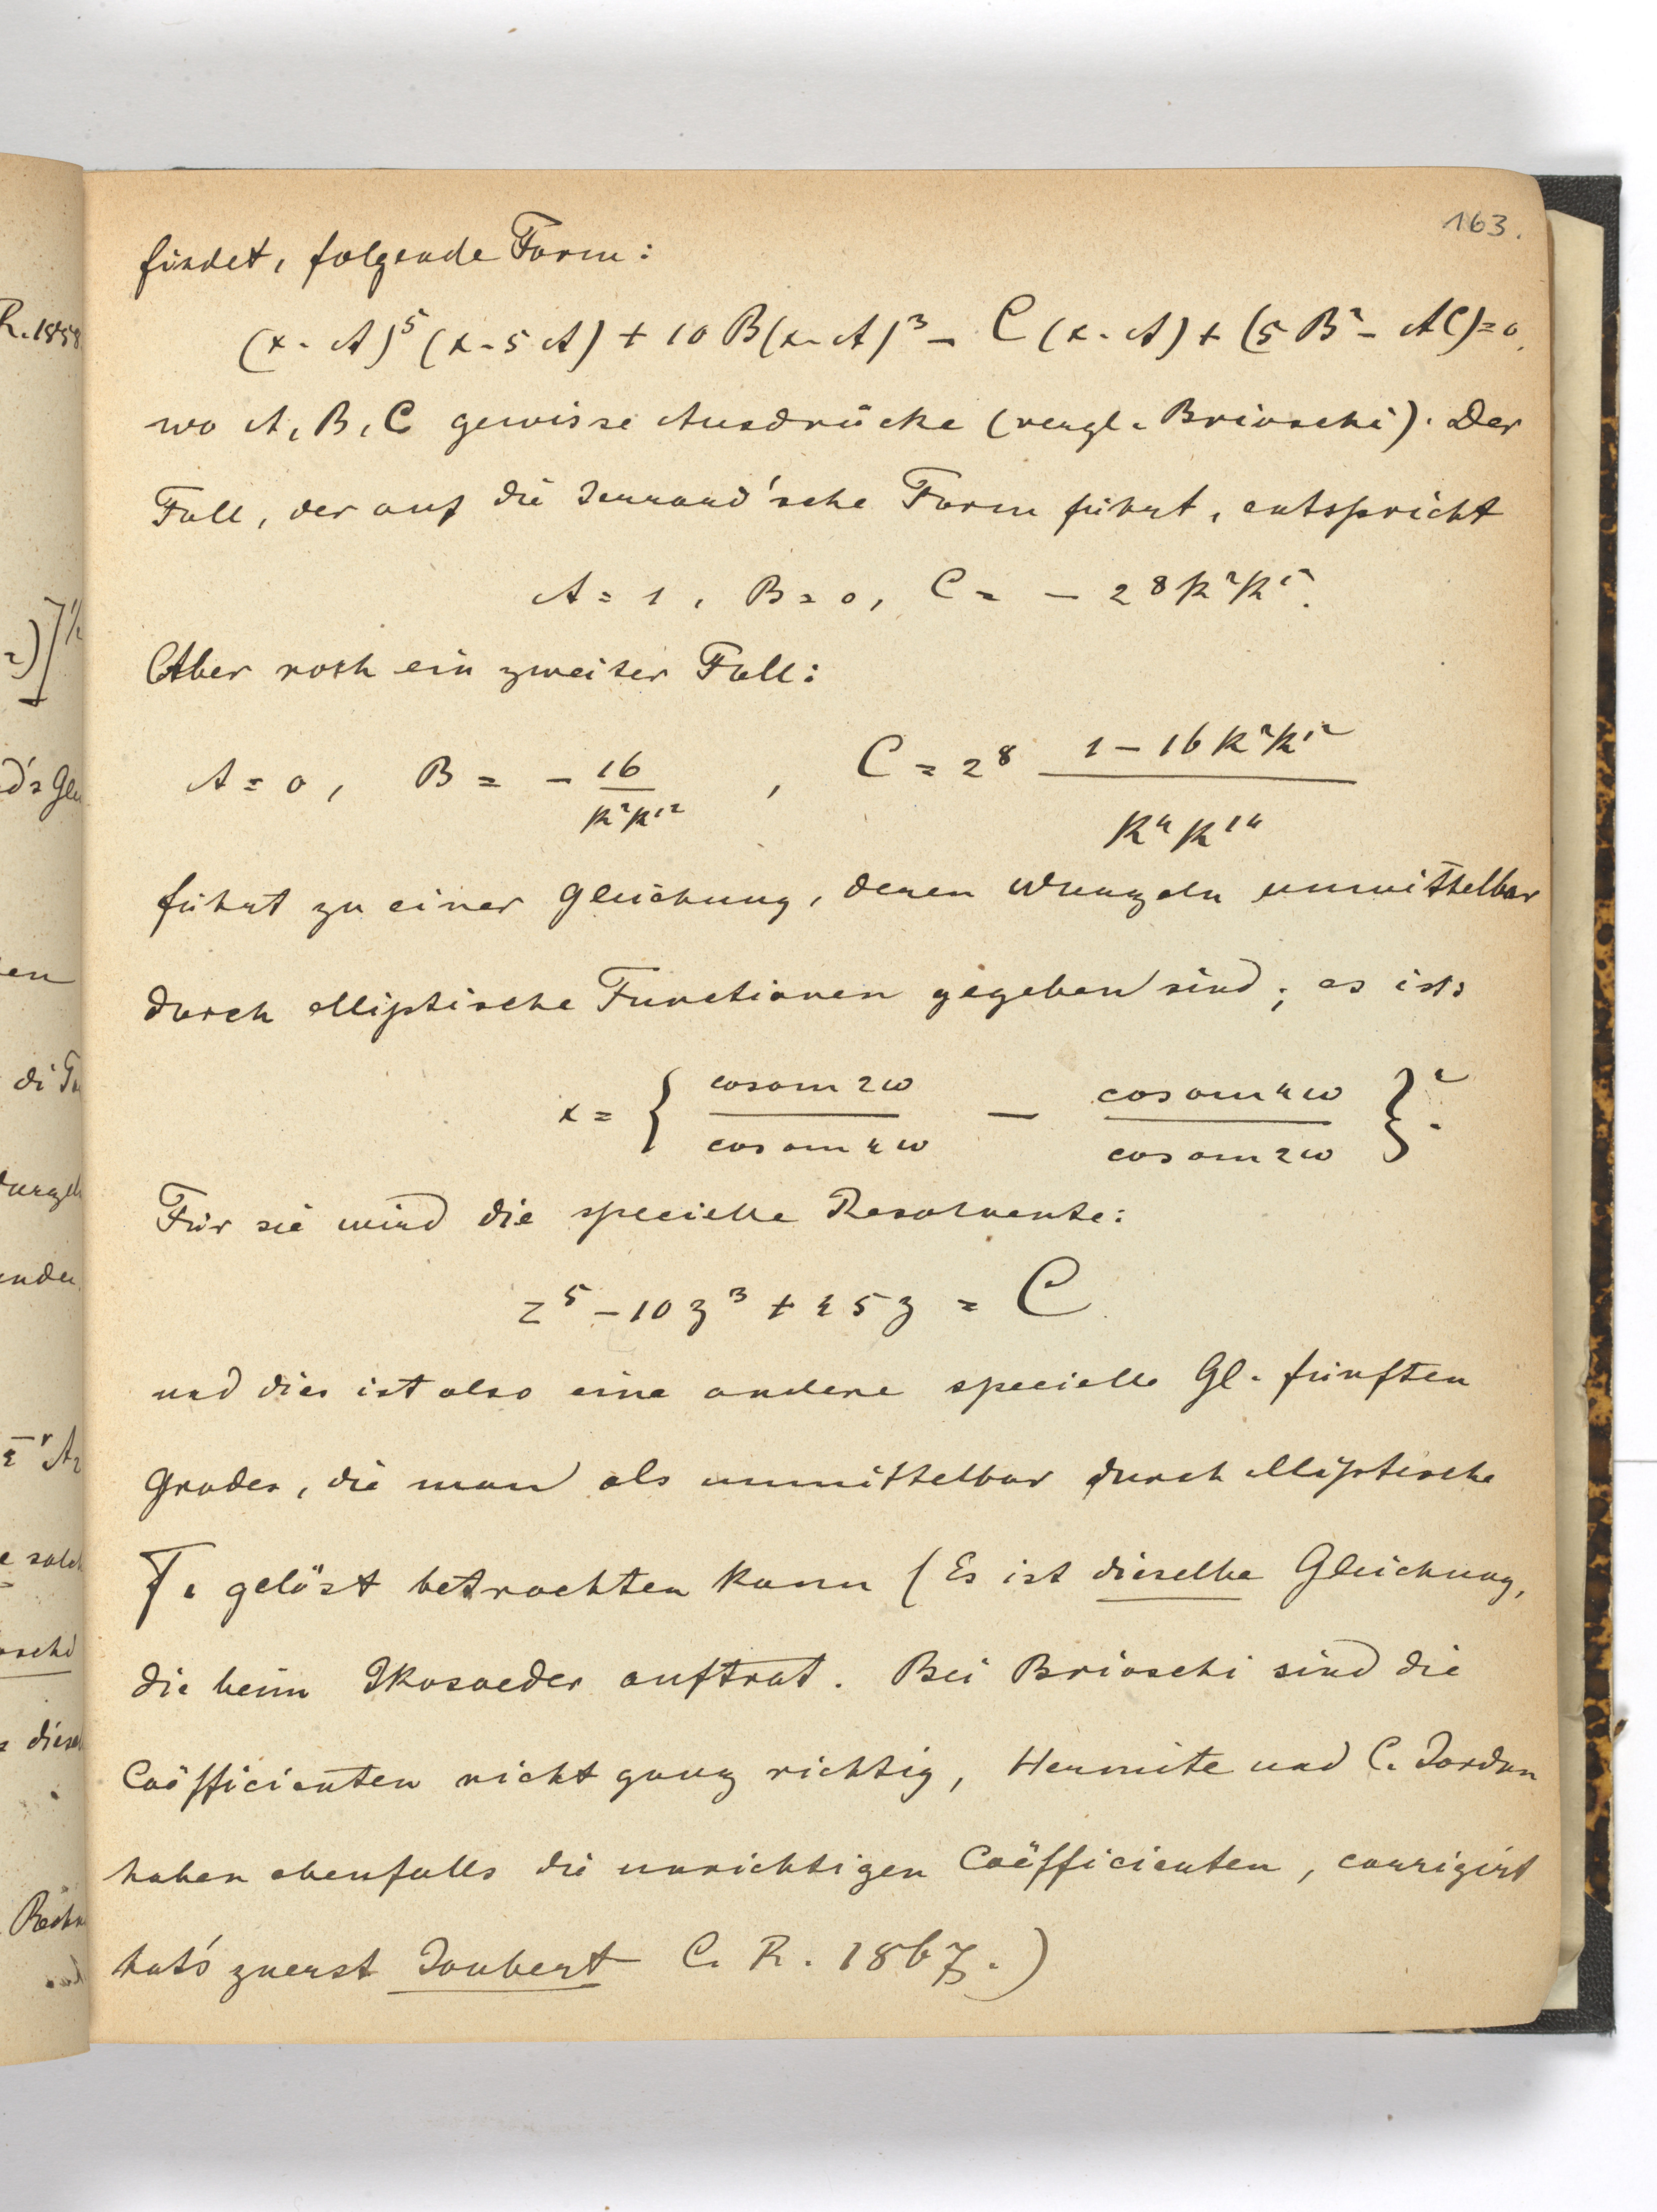 163.
findet, folgende Form:
(x - A)⁵ (x - 5 A) + 10 B (x - A)³ - C (x - A) + (5 B² - AC) = 0,
wo A, B, C gewisse Ausdrücke (vergl. Brioschi). Der
Fall, der auf die Jerrard'sche Form führt, entspricht
A = 1, B = 0, C = - 2⁸ k² k'².
Aber noch ein zweiter Fall:
A = 0, B = - 16 / k² k'² , C = 2⁸ (1 - 16 k² k'²) / k⁴ k'⁴
führt zu einer Gleichung, deren Wurzeln unmittelbar
durch elliptische Functionen gegeben sind; es ist:
x = { cos am 2ω / cos am 4ω - cos am 4ω / cos am 2ω }².
Für sie wird die specielle Resolvente:
z⁵ - 10 z³ + 45 z = C.
und dies ist also eine andere specielle Gl. fünften
Grades, die man als unmittelbar durch elliptische
F. gelöst betrachten kann (Es ist dieselbe Gleichung,
die beim Ikosaeder auftrat. Bei Brioschi sind die
Coëfficienten nicht ganz richtig, Hermite und C. Jordan
haben ebenfalls die unrichtigen Coëfficienten, corrigirt
hat's zuerst Joubert C. R. 1867.)